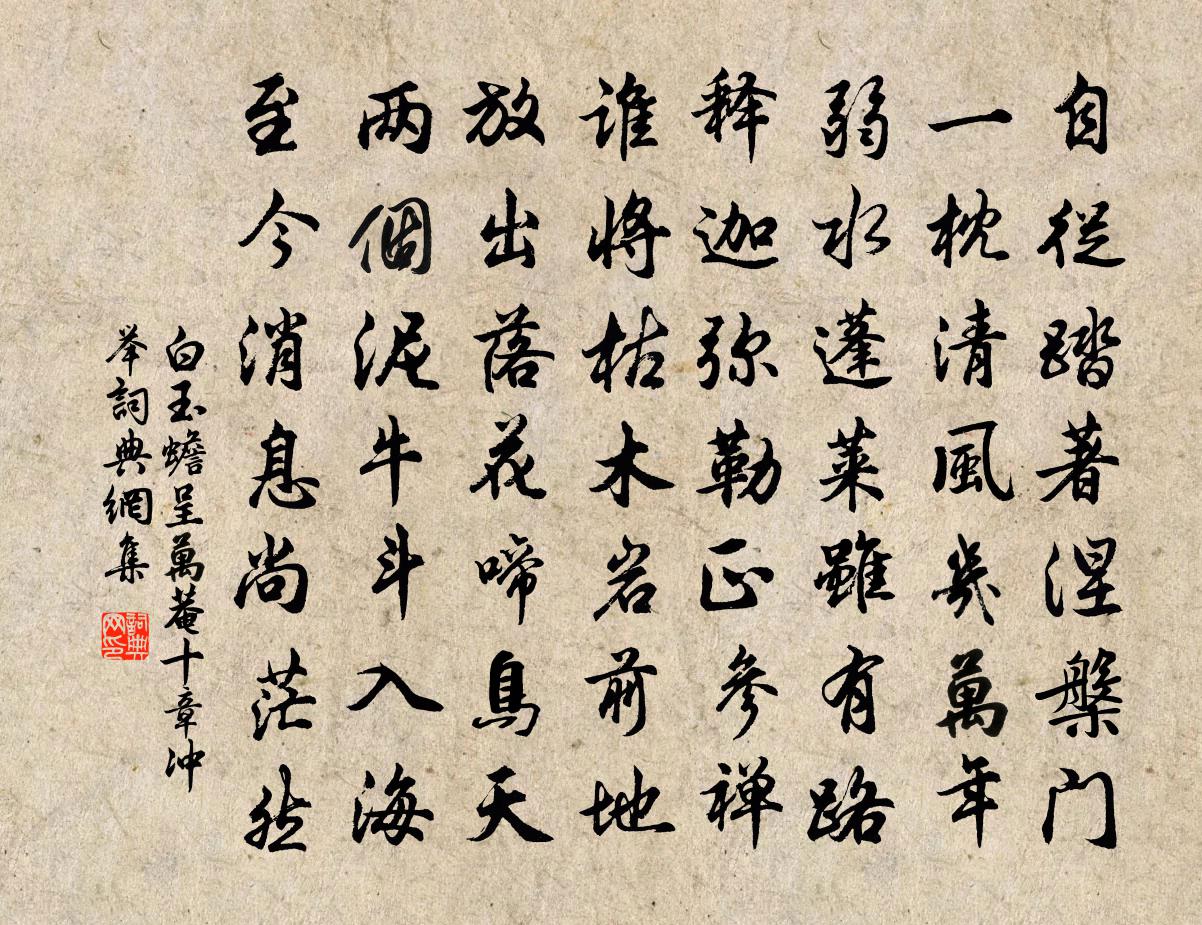 自從踏著涅槃门
一枕清風幾萬年
弱水蓬萊雖有路
释迦弥勒正參禅
谁將枯木岩前地
放出落花啼鳥天
两個泥牛斗入海
至今消息尚茫然
白玉蟾呈萬菴十章冲
举詞典網集
詞典网印